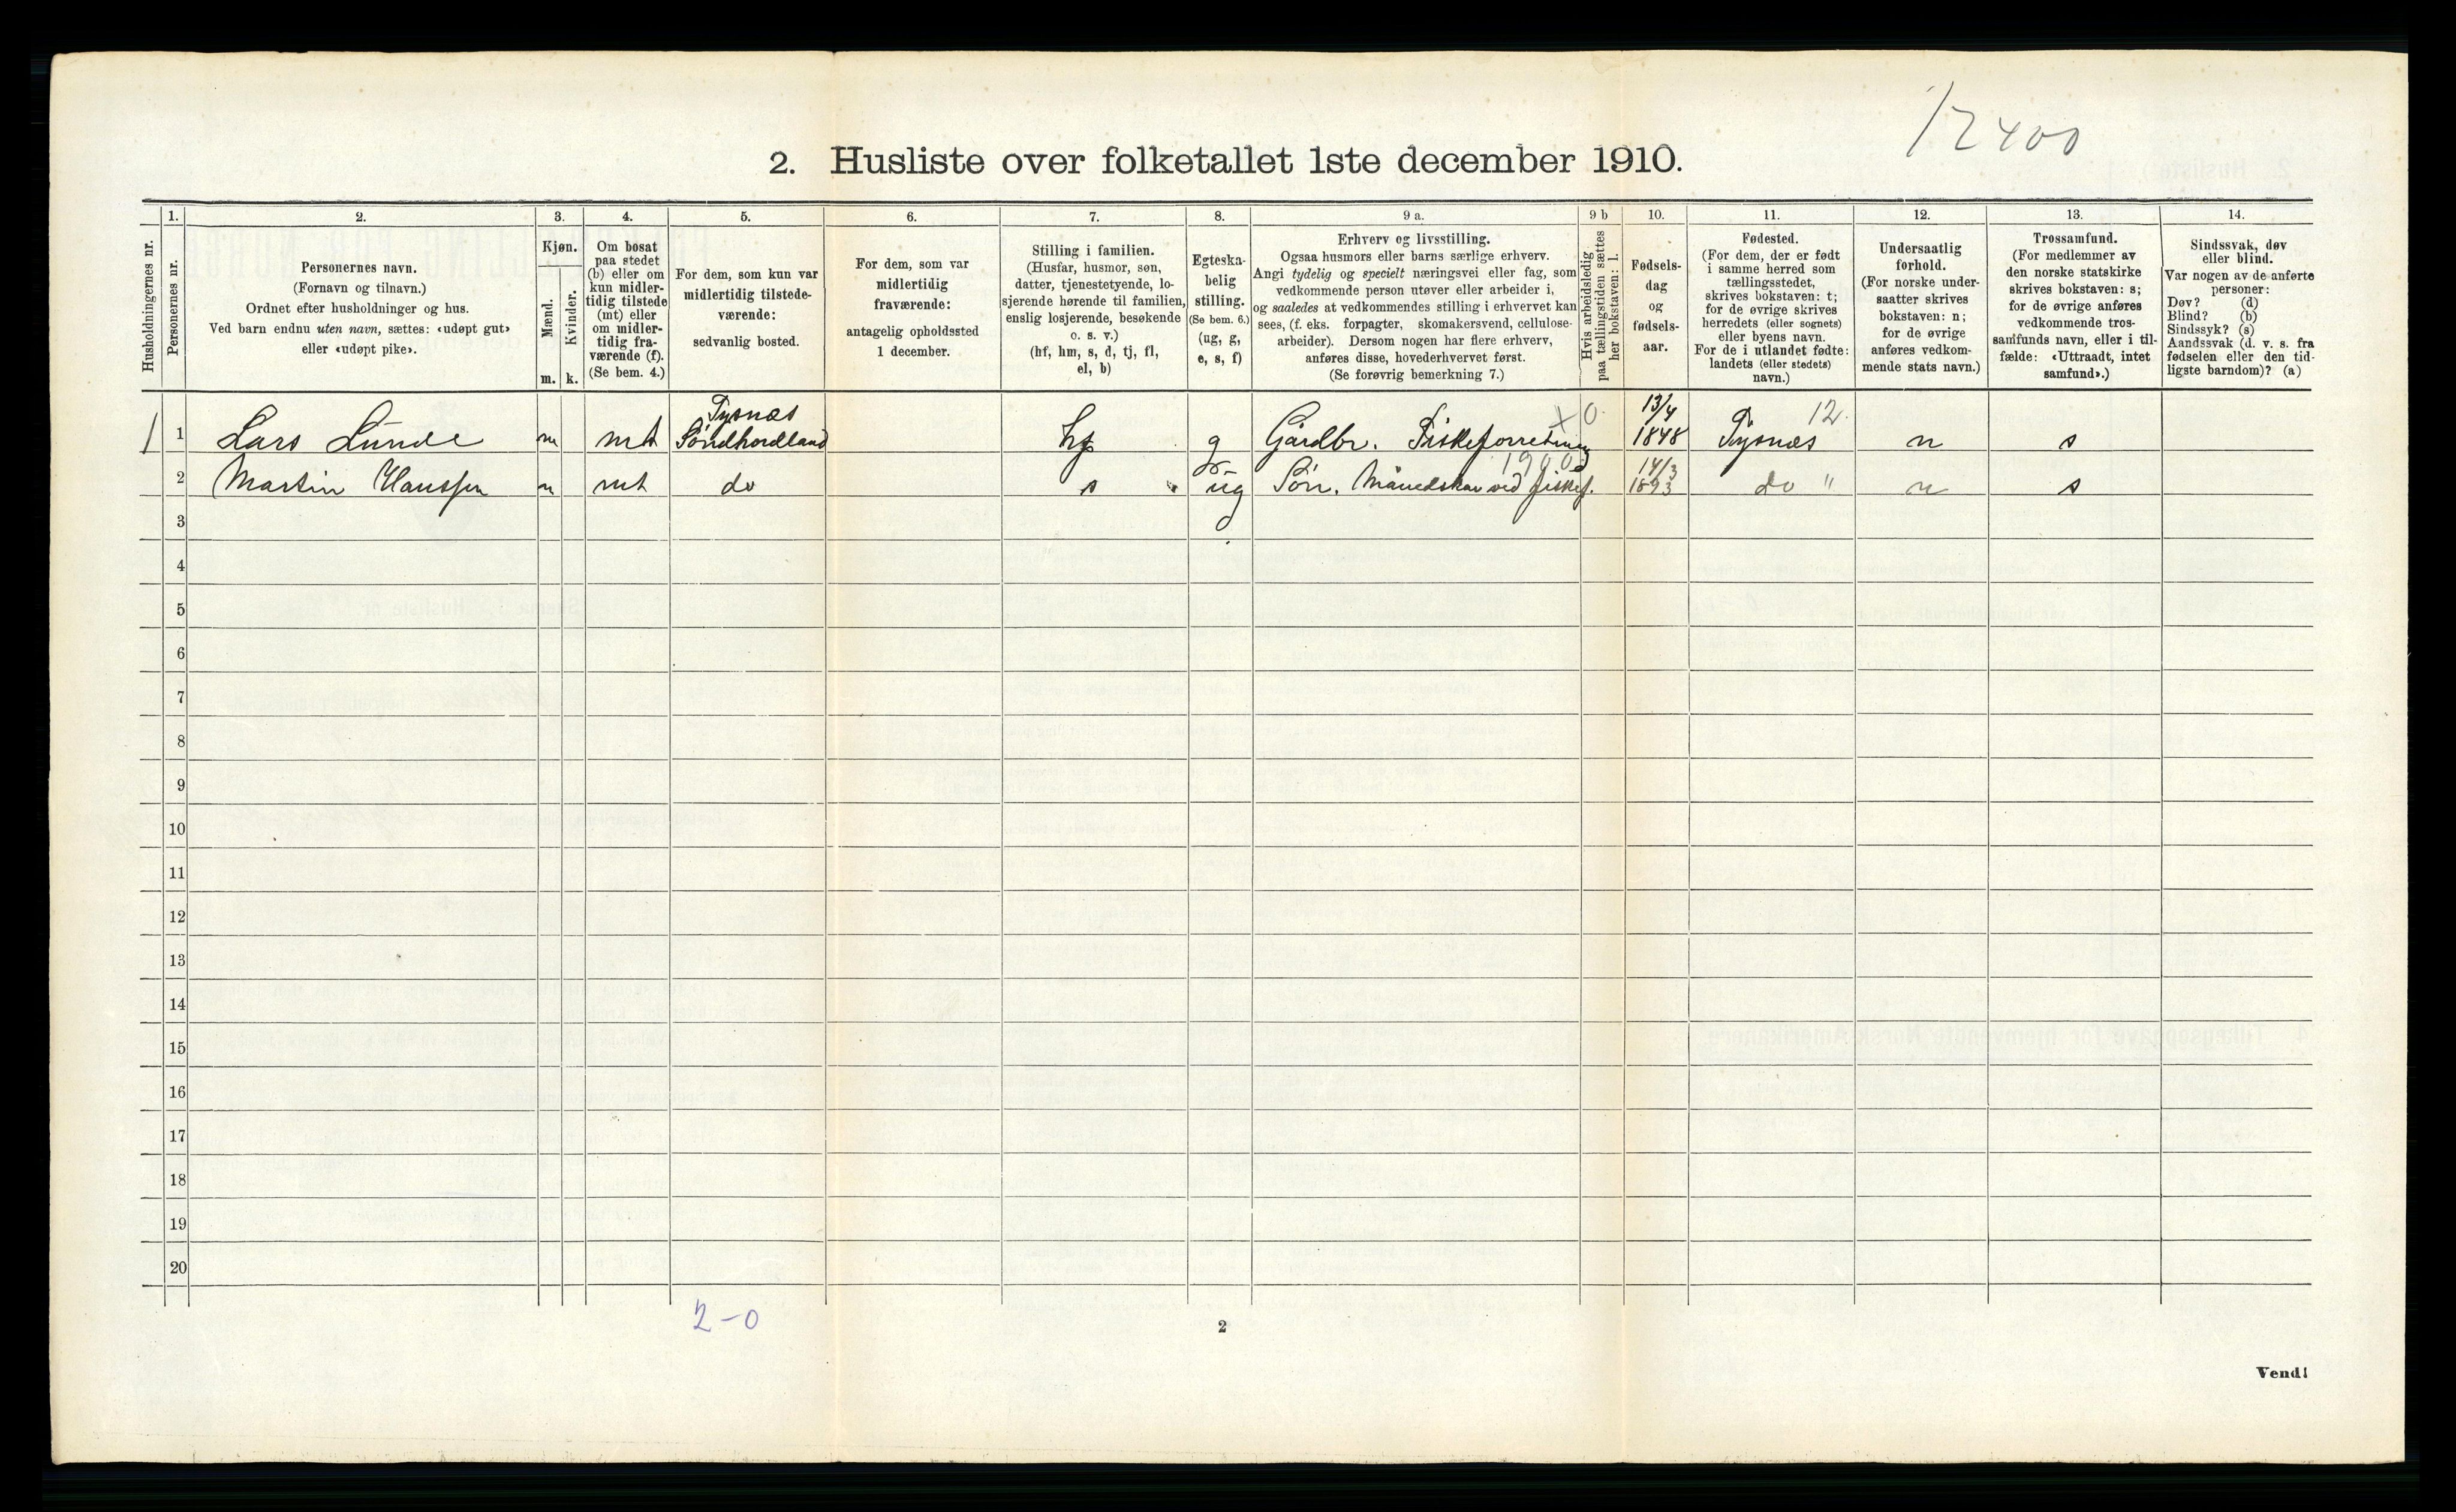 12400
2. Husliste over folketallet 1ste december 1910.
Husholdningernes nr.
1.
Personernes nr.
2.
Personernes navn.
(Fornavn og tilnavn.)
Ordnet efter husholdninger og hus.
Ved barn endnu uten navn, sættes: «udøpt gut»
eller «udøpt pike».
3.
Kjøn.
Mænd.
Kvinder.
m. k.
4.
Om bosat
paa stedet
(b) eller om
kun midler-
tidig tilstede
(mt) eller
om midler-
tidig fra-
værende (f).
(Se bem. 4.)
5.
For dem, som kun var
midlertidig tilstede-
værende:
sedvanlig bosted.
6.
For dem, som var
midlertidig
fraværende:
antagelig opholdssted
1 december.
7.
Stilling i familien.
(Husfar, husmor, søn,
datter, tjenestetyende, lo-
sjerende hørende til familien,
enslig losjerende, besøkende
o. s. v.)
(hf, hm, s, d, tj, fl,
el, b)
8.
Egteska-
belig
stilling.
(Se bem. 6.)
(ug, g,
e, s, f)
9 a.
Erhverv og livsstilling.
Ogsaa husmors eller barns særlige erhverv.
Angi tydelig og specielt næringsvei eller fag, som
vedkommende person utøver eller arbeider i,
og saaledes at vedkommendes stilling i erhvervet kan
sees, (f. eks. forpagter, skomakersvend, cellulose-
arbeider). Dersom nogen har flere erhverv,
anføres disse, hovederhvervet først.
(Se forøvrig bemerkning 7.)
9 b
Hvis arbeidsledig
paa tællingstiden sættes
her bokstaven: l.
10.
Fødsels-
dag
og
fødsels-
aar.
11.
Fødested.
(For dem, der er født
i samme herred som
tællingsstedet,
skrives bokstaven: t;
for de øvrige skrives
herredets (eller sognets)
eller byens navn.
For de i utlandet fødte:
landets (eller stedets)
navn.)
12.
Undersaatlig
forhold.
(For norske under-
saatter skrives
bokstaven: n;
for de øvrige
anføres vedkom-
mende stats navn.)
13.
Trossamfund.
(For medlemmer av
den norske statskirke
skrives bokstaven: s;
for de øvrige anføres
vedkommende tros-
samfunds navn, eller i til-
fælde: «Uttraadt, intet
samfund».)
14.
Sindssvak, døv
eller blind.
Var nogen av de anførte
personer:
Døv? (d)
Blind? (b)
Sindssyk? (s)
Aandssvak (d. v. s. fra
fødselen eller den tid-
ligste barndom)? (a)
Tysnæs x 0 13/4 12.
1 1 Lars Lunde m mt Søndhordland hf g Gårdbr. Fiskeforretning 1848 Tysnæs n s
1900 14/3
2 Martin Hanssen m mt do s ug Søn. Månedskar ved fiskef. 1893 do " n s
3
4
5
6
7
8
9
10
11
12
13
14
15
16
17
18
19
20
2-0
2
Vend!